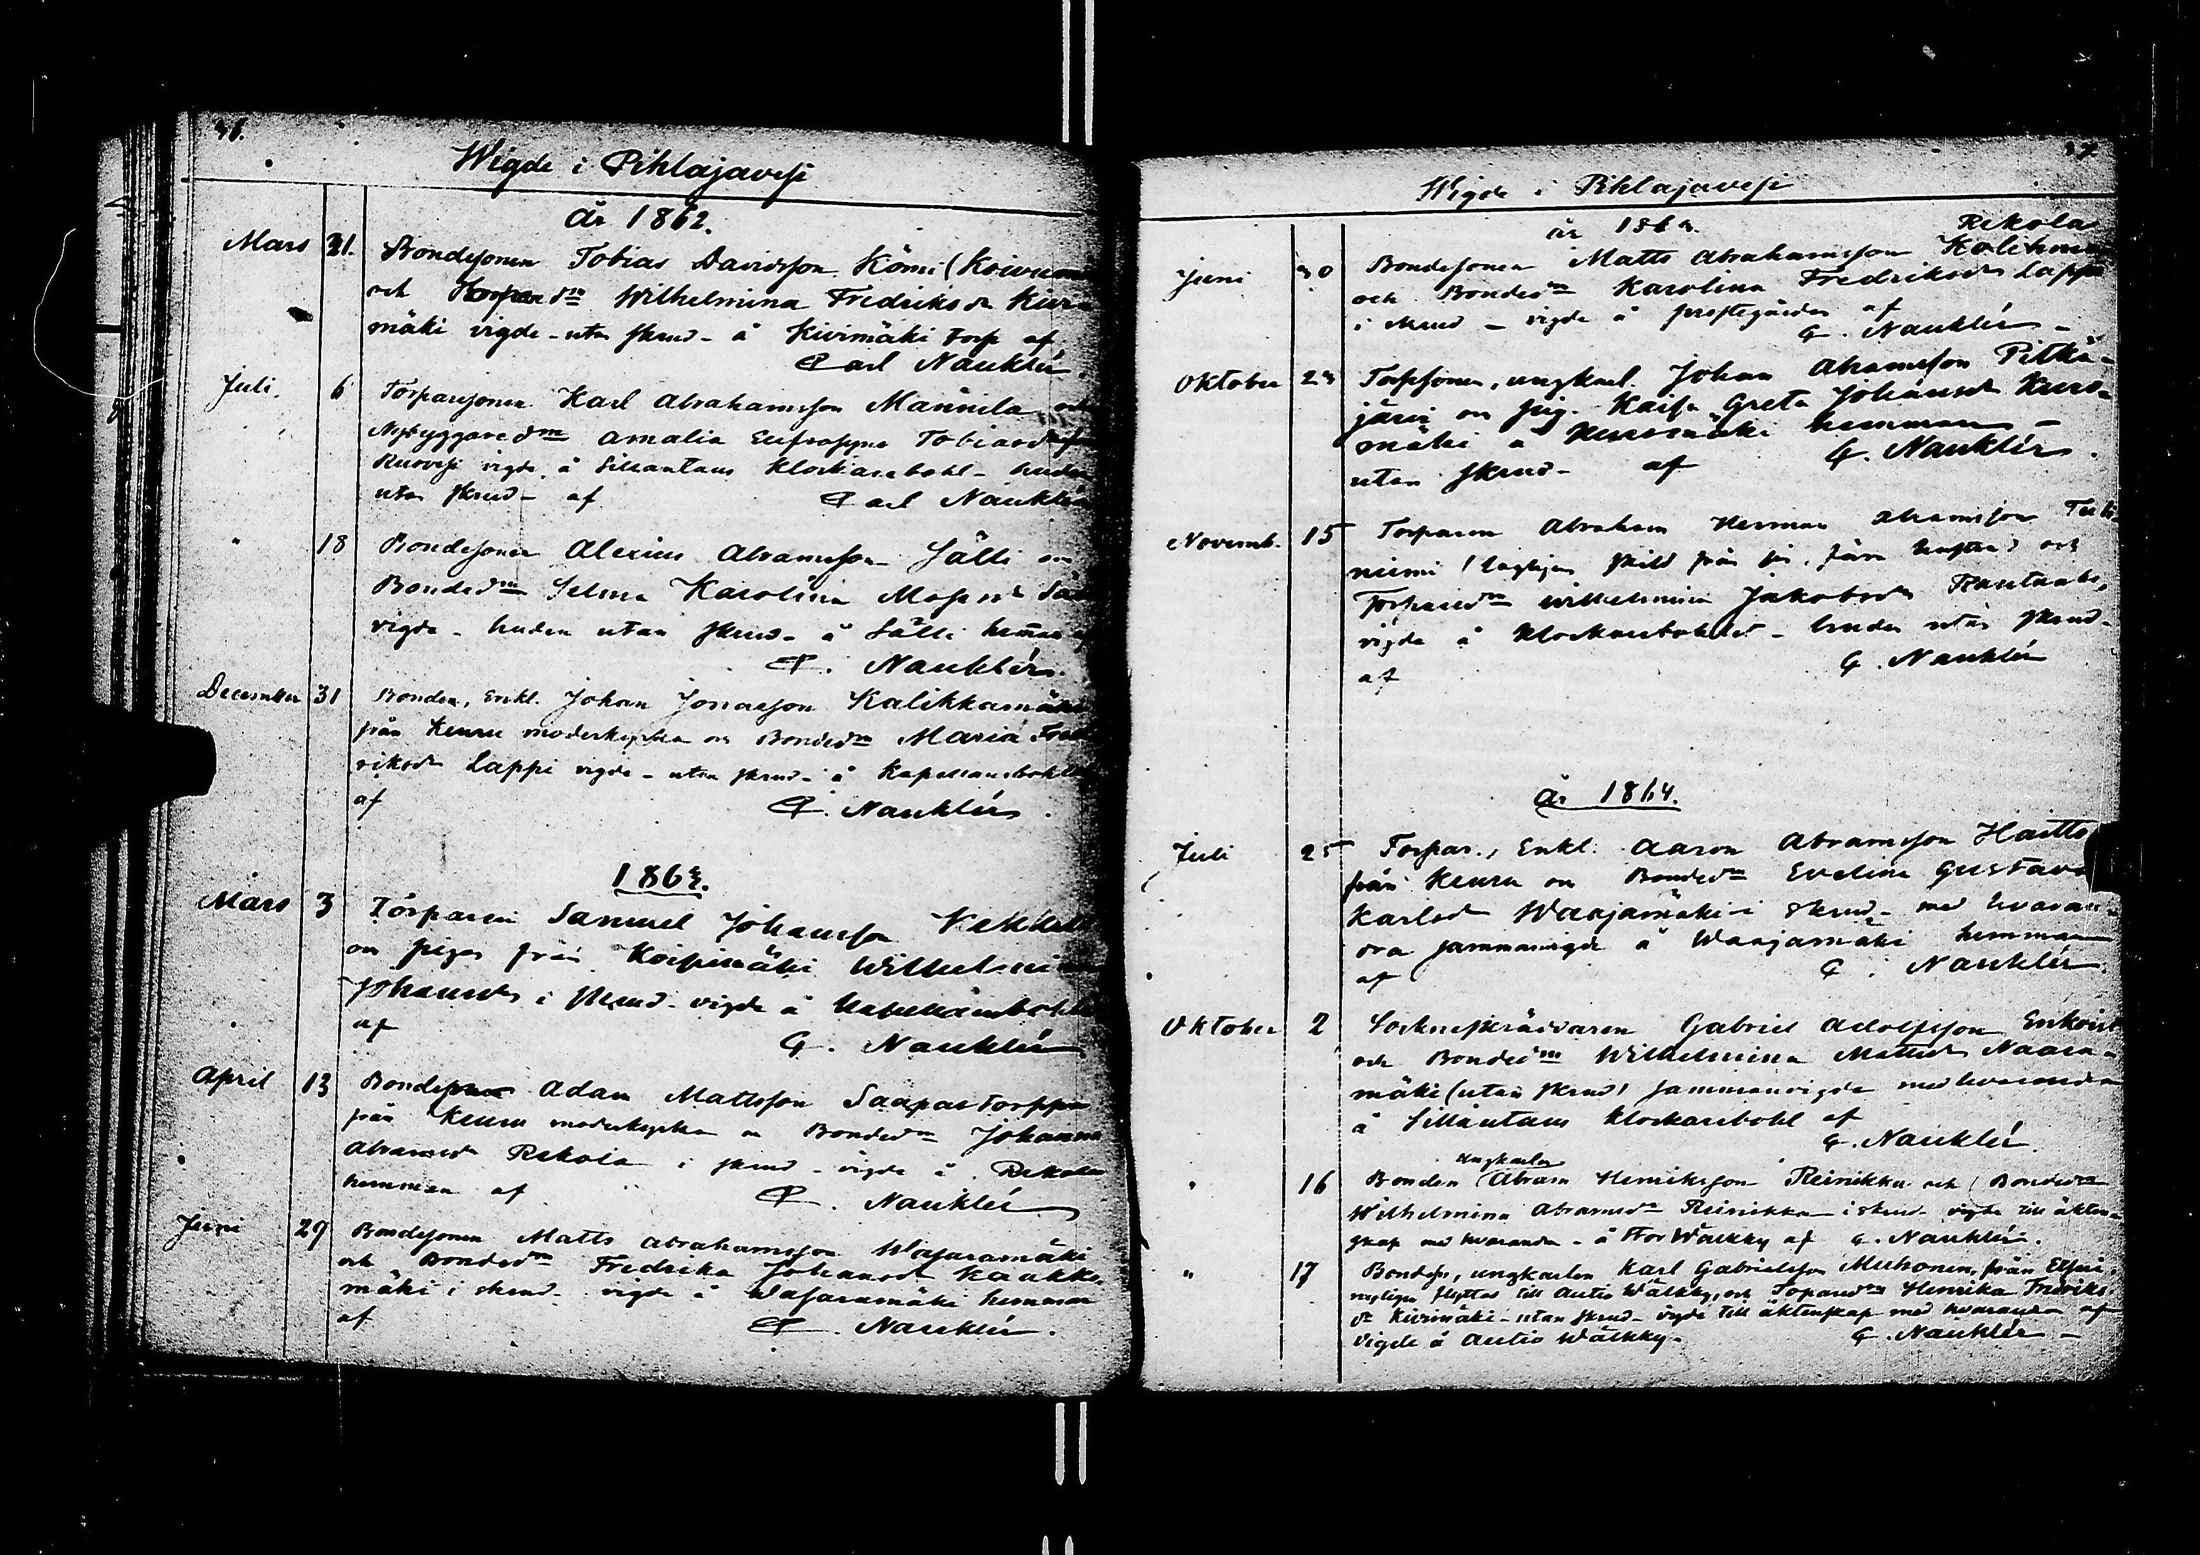 Wigde i Pihlajavesi
År 1862.
Mars 21. Bondesonen Tobias Davidsson Kömi (Koivu
och Torpare dn Wilhelmina Fredriksdr Kivi
mäki vigde - utan skrud - å Kivimäki torp af
Carl Nauklér.
Juli 6 Torparesonen Karl Abrahamsson Mannila och
Nybyggaredn Amalia Eufrosyne Tobiasdr
Kurvesi vigde å Sillantaus Klockarebohl - bruden
utan skrud - af Carl Nauklér
" 18 Bondesonen Alexius Abramsson Sälli och
Bondedn Selma Karolina Mosesdr
vigde - bruden utan skrud - å Sälli hemman af
C. Nauklér.
December 31 Bonden, Enkl. Johan Jonasson Kalikkamäki
från Keuru moderkyrka och Bondedn Maria Fred
riksdr Lappi vigde - utan skrud - å Kapellansbohlet
af C. Nauklér.
1863.
Mars 3 Torparen Samuel Johansson
och pigan från Koipimäki Wilhelmina
Johansdr i skrud - vigde å Kapellansbohlet
af
C. Nauklér
April 13 Bonden Adam Mattsson Saapastorppa
från Keuru moderkyrka och Bondedn Johanna
Abramsdr Rekola i skrud - vigde å Rekola
hemman af C. Nauklér
Juni 29 Bondesonen Matts Abrahamsson Wasaramäki
och Bondedn Fredrika Johansdr Kaakko
mäki i skrud - vigde å Wasaramäki hemman
af C. Nauklér.
Wigde i Pihlajavesi
år 1863. Rekola
Juni 30 Bondesonen Matts Abrahamsson
och Bondedn Karolina Fredriksdr Lappi
i skrud - vigde å prestegården af
C. Nauklér -
Oktober 28 Torpsonen, ungkarl. Johan Abramsson Pitkä-
järvi och pig. Kaisa Greta Johansdr Kuro-
mäki å Kuromäki hemman -
utan skrud - af C. Nauklér.
Novemb. 15 Torparen Abraham Herman Abramsson
niemi (lagligen skild från sin förra hustru) och
Torparedn Wilhelmina Jakobsdr
vigde å Klockarebohlet - bruden utan skrud -
af C. Nauklér
År 1864.
Juli 25 Torpar., Enkl. Aaron Abramsson Haitto
från Keuru och Bondedn Evelina Gustava
Karlsdr Waajamäki i skrud - med hvaran-
dra sammanvigde å Waajamäki hemman
af C. Nauklér.
Oktober 2 Sockneskräddaren Gabriel Adolfsson Enkvist
och Bondedn Wilhelmina Mattsdr Naara-
mäki (utan skrud) sammanvigde med hvarandra
å Sillantaus Klockarebohl af
C. Nauklér
" 16 Bonden Ungkarlen Abram Henriksson Reinikka och Bondedn
Wilhelmina Abramsdn Reinikka i skrud - vigde till äkten-
skap med hvarandra - å Wälkky af C. Nauklér.
" 17 Bondess, ungkarlen Karl Gabrielsson Muhonen, från Etseri
nyligen flyttad till Autio Wälkky, och Toparedn Henrika Fredriks
dr Kivimäki - utan skrud - vigde till äktenskap med hvarandra af
vigde å Autio Wälkky - C. Nauklér -